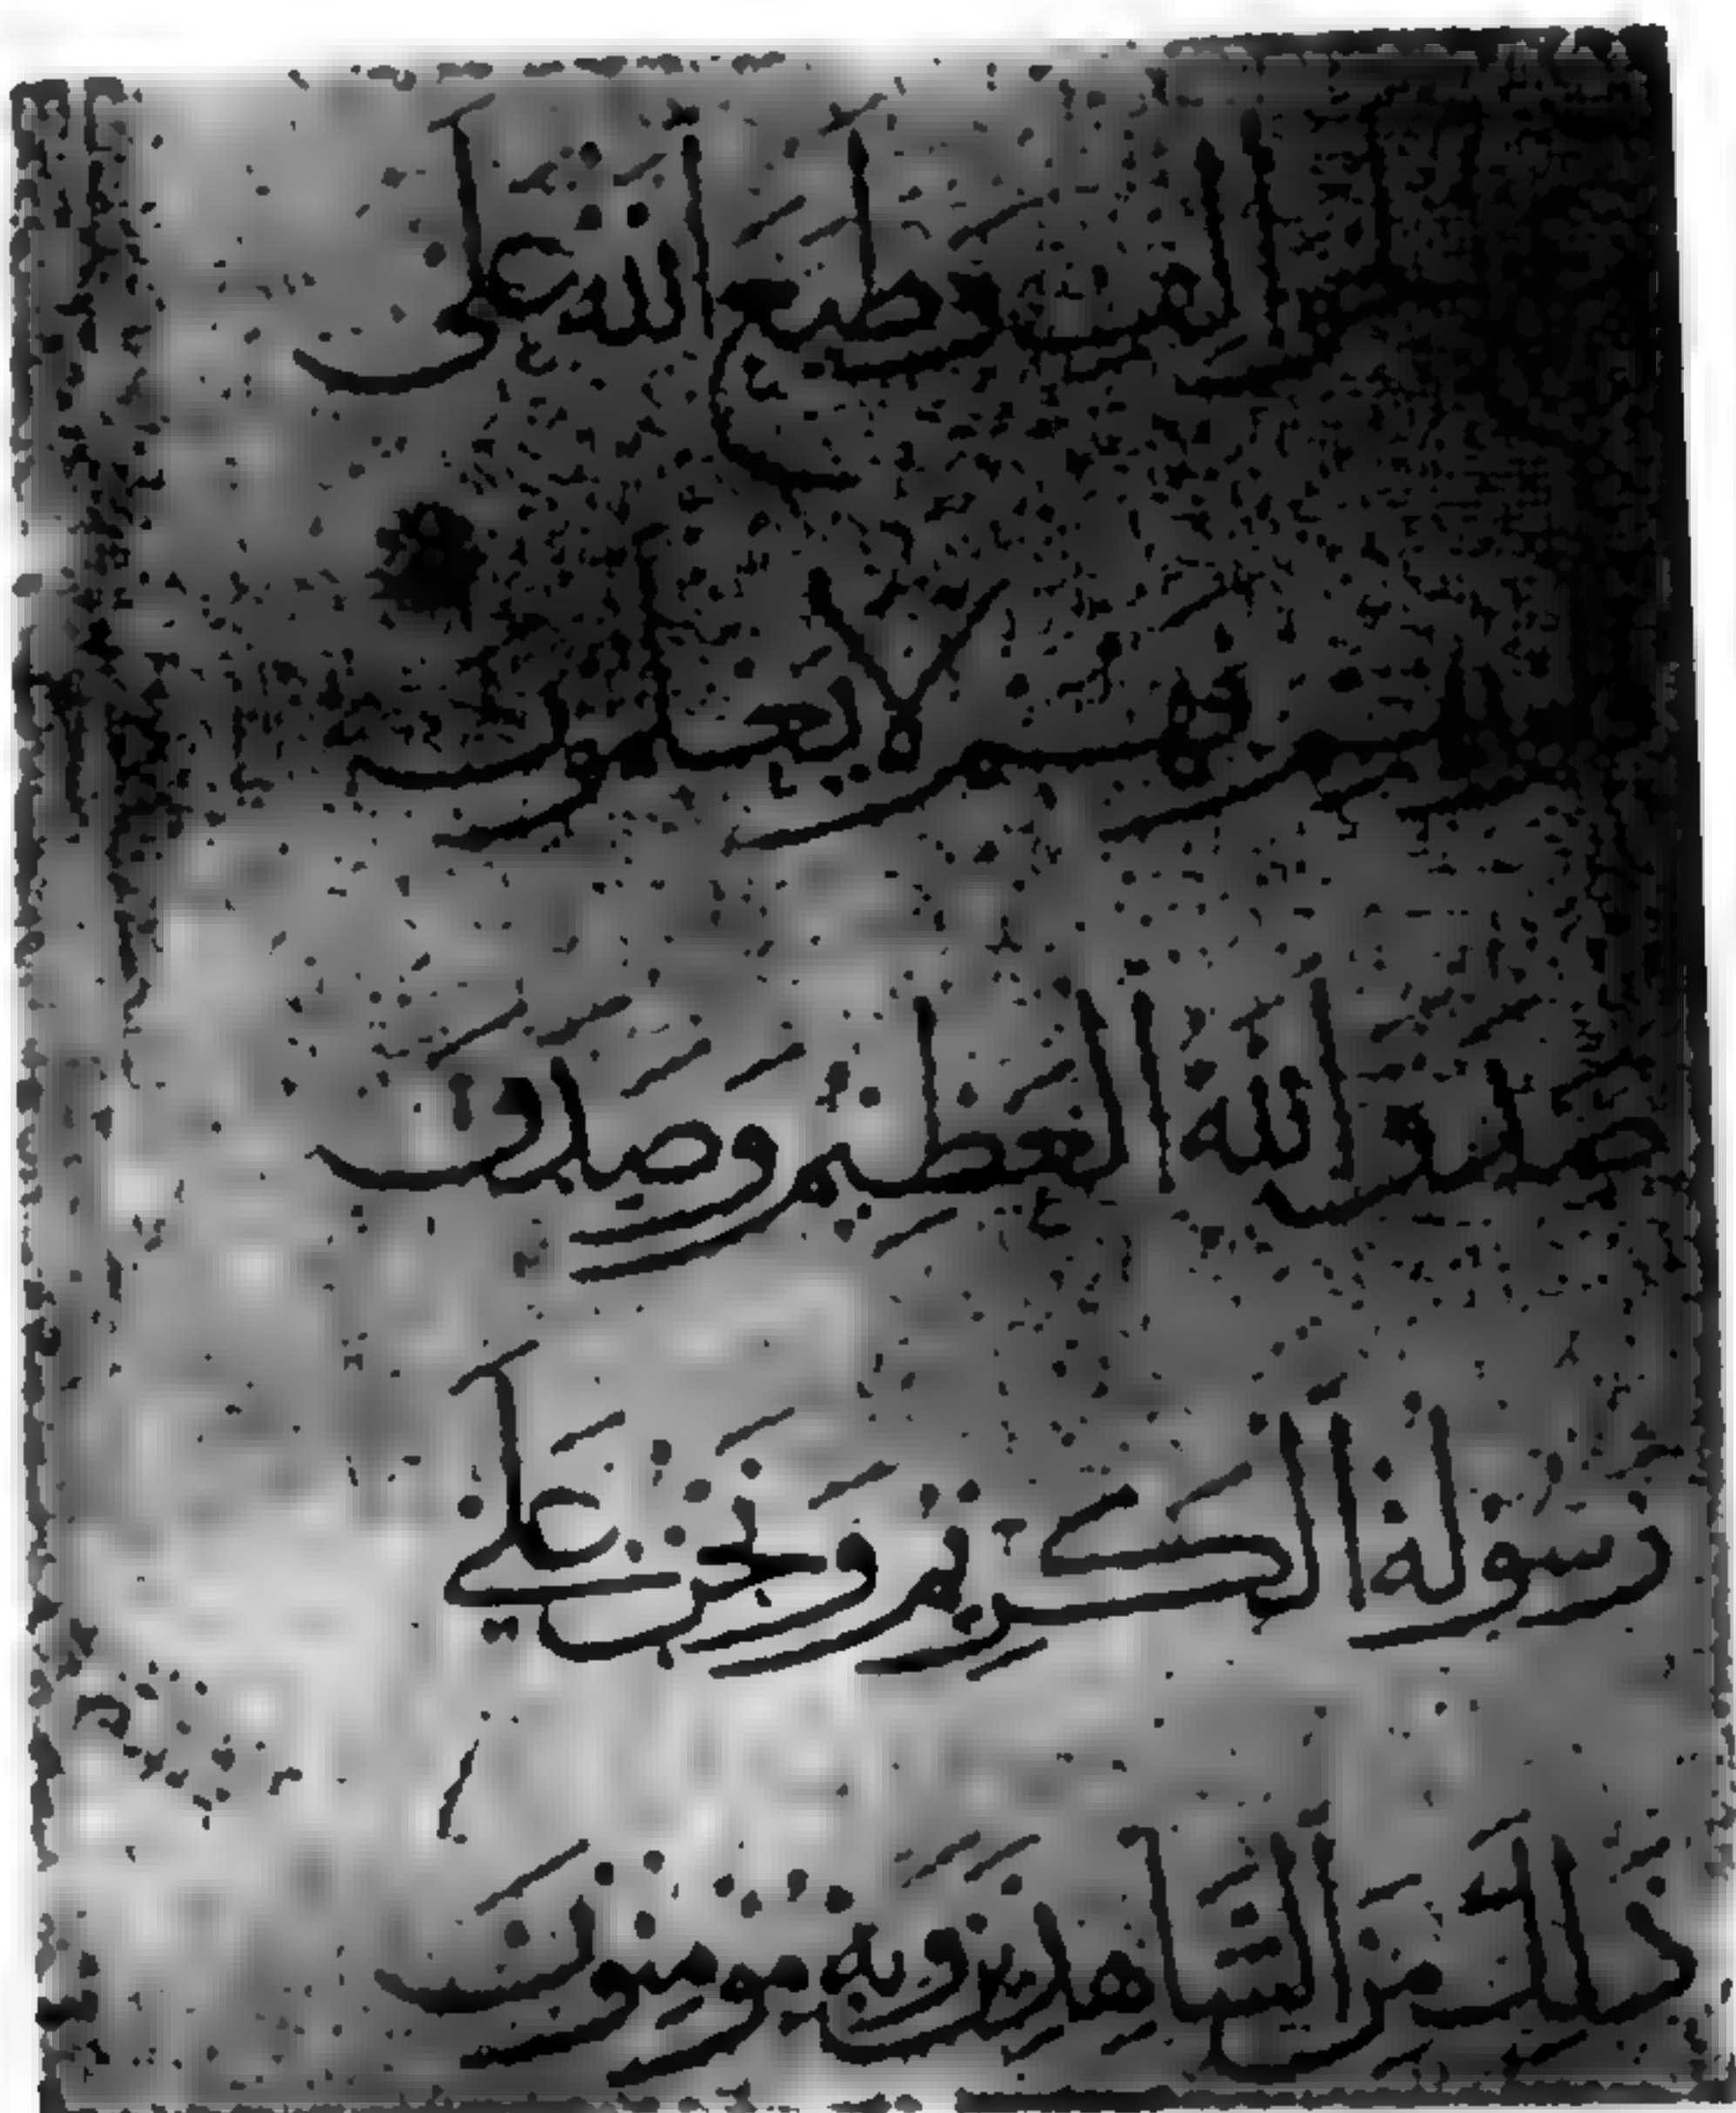 الخوالف وَطَبَعَ اللهُ عَلَى
قلوبهم فَهُمْ لَا يَعْلَمُونَ
صَدَقَ اللهُ الْعَظِيمُ وَصَدَقَ
رَسُولُهُ الْكَرِيمُ وَنَحْنُ عَلَى
ذَلِكَ مِنَ الشَّاهِدِينَ وَبِهِ مُومِنُونَ